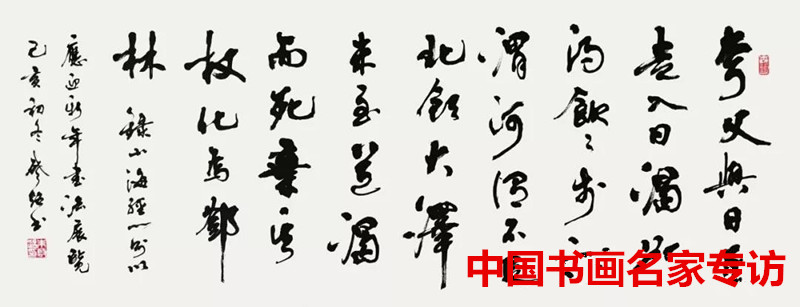 夸父與日逐
走入日渴欲
得飲〻於河
渭河渭不足
北飲大澤
未至道渴
而死棄其
杖化為鄧
林
錄山海經一則以
應迎新年書法展覽
己亥初冬
书
中国书画名家专访